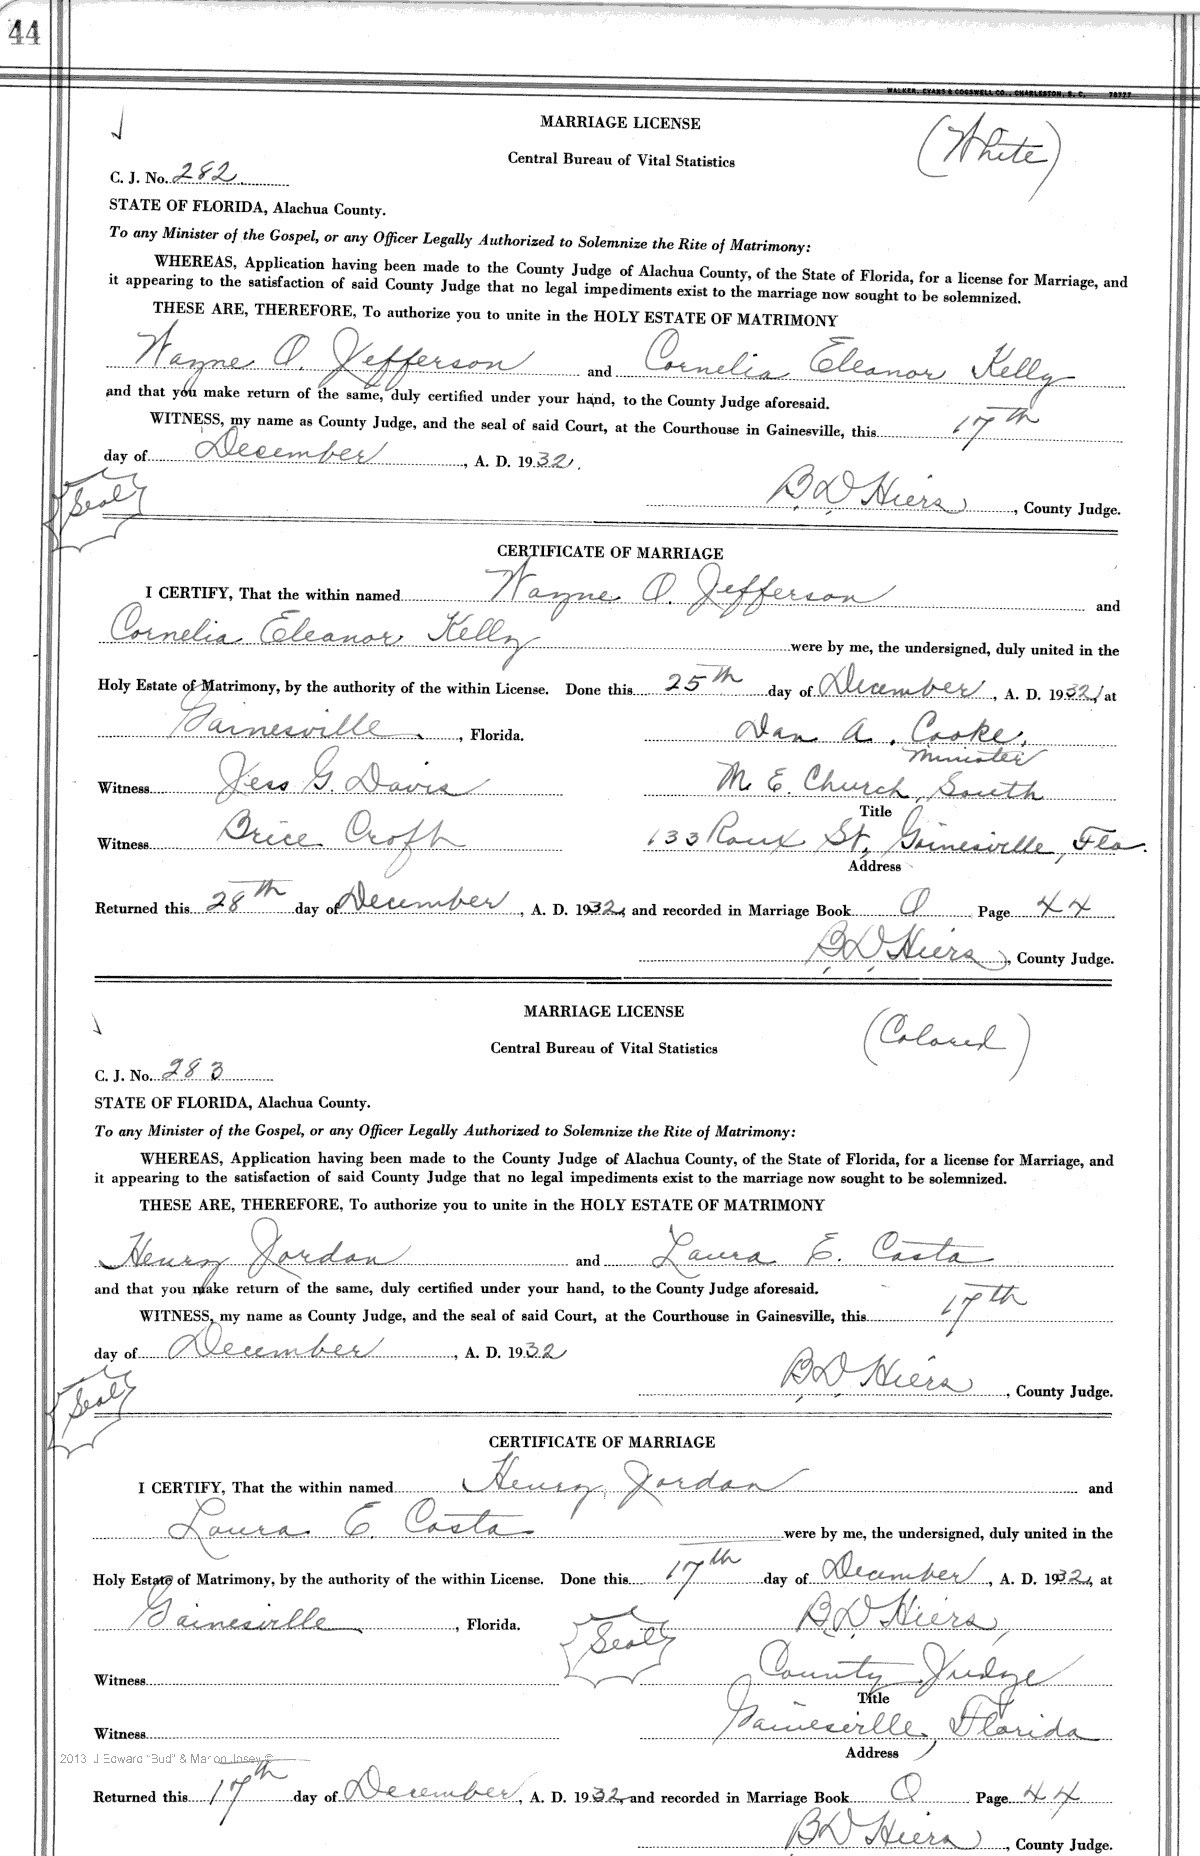 44
WALKER, EVANS & COGSWELL CO., CHARLESTON, S. C. 78777
MARRIAGE LICENSE
(White)
Central Bureau of Vital Statistics
C. J. No. 282
STATE OF FLORIDA, Alachua County.
To any Minister of the Gospel, or any Officer Legally Authorized to Solemnize the Rite of Matrimony:
WHEREAS, Application having been made to the County Judge of Alachua County, of the State of Florida, for a license for Marriage, and
it appearing to the satisfaction of said County Judge that no legal impediments exist to the marriage now sought to be solemnized.
THESE ARE, THEREFORE, To authorize you to unite in the HOLY ESTATE OF MATRIMONY
Wayne O. Jefferson and Cornelia Eleanor Kelly
and that you make return of the same, duly certified under your hand, to the County Judge aforesaid.
WITNESS, my name as County Judge, and the seal of said Court, at the Courthouse in Gainesville, this 17th
day of December, A. D. 1932.
Seal
B. D. Hiers, County Judge.
CERTIFICATE OF MARRIAGE
I CERTIFY, That the within named Wayne O. Jefferson and
Cornelia Eleanor Kelly were by me, the undersigned, duly united in the
Holy Estate of Matrimony, by the authority of the within License. Done this 25th day of December, A. D. 1932, at
Gainesville, Florida. Dan A. Cooke,
Minister
Witness Jess G. Davis M. E. Church, South
Title
Witness Brice Croft 133 Roux St., Gainesville, Fla.
Address
Returned this 28th day of December, A. D. 1932, and recorded in Marriage Book O Page 44
B. D. Hiers, County Judge.
MARRIAGE LICENSE
(Colored)
Central Bureau of Vital Statistics
C. J. No. 283
STATE OF FLORIDA, Alachua County.
To any Minister of the Gospel, or any Officer Legally Authorized to Solemnize the Rite of Matrimony:
WHEREAS, Application having been made to the County Judge of Alachua County, of the State of Florida, for a license for Marriage, and
it appearing to the satisfaction of said County Judge that no legal impediments exist to the marriage now sought to be solemnized.
THESE ARE, THEREFORE, To authorize you to unite in the HOLY ESTATE OF MATRIMONY
Henry Jordan and Laura E. Costa
and that you make return of the same, duly certified under your hand, to the County Judge aforesaid.
WITNESS, my name as County Judge, and the seal of said Court, at the Courthouse in Gainesville, this 17th
day of December, A. D. 1932
Seal
B. D. Hiers, County Judge.
CERTIFICATE OF MARRIAGE
I CERTIFY, That the within named Henry Jordan and
Laura E. Costa were by me, the undersigned, duly united in the
Holy Estate of Matrimony, by the authority of the within License. Done this 17th day of December, A. D. 1932, at
Gainesville, Florida. Seal B. D. Hiers,
Witness County Judge
Title
Witness Gainesville, Florida
Address
2013 J Edward "Bud" & Marion Josey ©
Returned this 17th day of December, A. D. 1932, and recorded in Marriage Book O Page 44
B. D. Hiers, County Judge.